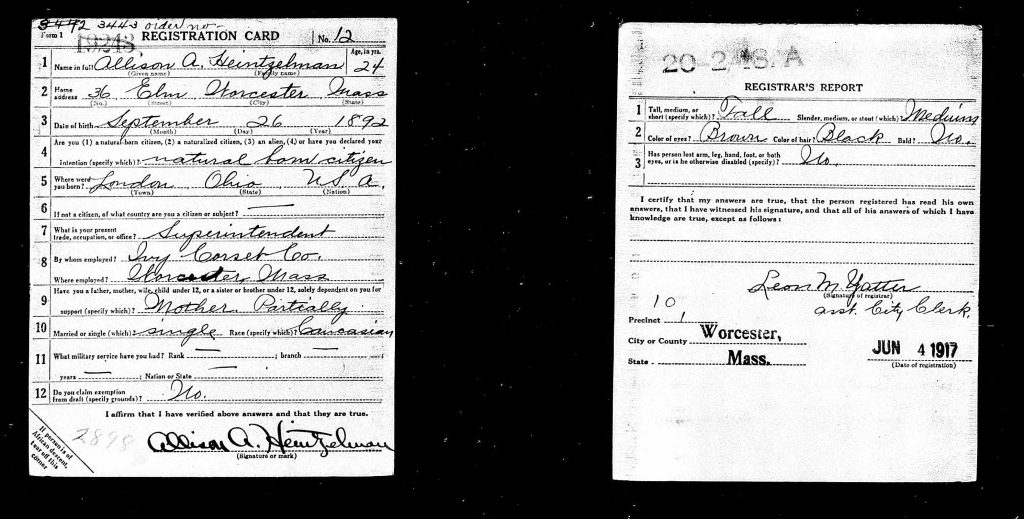 3472 3443 order no.
Form 1 19243 REGISTRATION CARD No. 12
1 Name in full Allison A. Heintzelman Age, in yrs. 24
(Given name) (Family name)
2 Home address 36 Elm Worcester Mass
(No.) (Street) (City) (State)
3 Date of birth September 26 1892
(Month) (Day) (Year)
4 Are you (1) a natural-born citizen, (2) a naturalized citizen, (3) an alien, (4) or have you declared your
intention (specify which)? natural born citizen
5 Where were you born? London Ohio U.S.A.
(Town) (State) (Nation)
6 If not a citizen, of what country are you a citizen or subject? —
7 What is your present trade, occupation, or office? Superintendent
8 By whom employed? Ivy Corset Co.
Where employed? Worcester, Mass
9 Have you a father, mother, wife, child under 12, or a sister or brother under 12, solely dependent on you for
support (specify which)? Mother Partially
10 Married or single (which)? single Race (specify which)? Caucasian
11 What military service have you had? Rank — ; branch — ;
years — ; Nation or State —
12 Do you claim exemption from draft (specify grounds)? No.
I affirm that I have verified above answers and that they are true.
2898
Allison A. Heintzelman
(Signature or mark)
If person is of
African descent,
tear off this
corner
20-2-18. A
REGISTRAR'S REPORT
1 Tall, medium, or short (specify which)? Tall Slender, medium, or stout (which)? Medium
2 Color of eyes? Brown Color of hair? Black Bald? No.
3 Has person lost arm, leg, hand, foot, or both
eyes, or is he otherwise disabled (specify)? No.
I certify that my answers are true, that the person registered has read his own
answers, that I have witnessed his signature, and that all of his answers of which I have
knowledge are true, except as follows:
Leon M.
(Signature of registrar)
asst. City Clerk.
10
Precinct 1
City or County Worcester,
State Mass.
JUN 4 1917
(Date of registration)